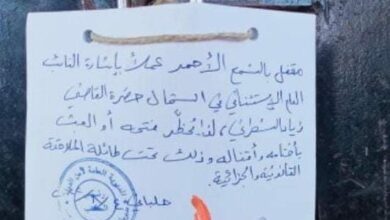 مقفل بالشمع الأحمر عملاً بإشارة النائب
العام الاستئنافي في الشمال حضرة القاضي
زياد الشعراني، لذا يُحظّر فتحه أو العبث
بأختامه وأقفاله وذلك تحت طائلة الملاحقة
القانونية والجزائية.
حلبا في